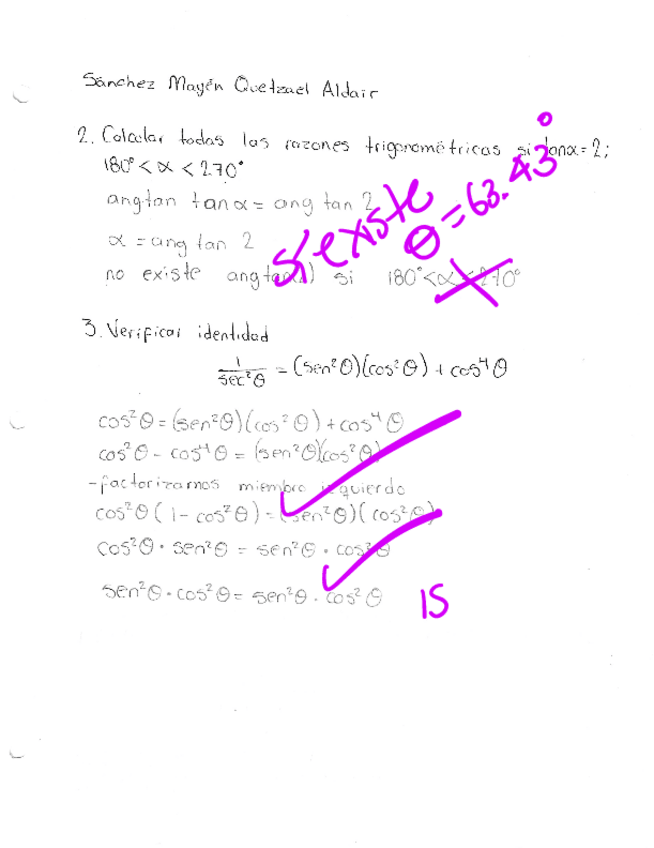 Sánchez Mayén Quetzael Aldair
2. Calcular todas las razones trigonométricas si tanα = 2;
180° < α < 270°
angtan tanα = ang tan 2
α = ang tan 2
no existe angtan(2) si 180° < α < 270°
Sí existe
θ = 63.43°
3. Verificar identidad
1/sec²θ = (sen²θ)(cos²θ) + cos⁴θ
cos²θ = (sen²θ)(cos²θ) + cos⁴θ
cos²θ - cos⁴θ = (sen²θ)(cos²θ)
-factorizamos miembro izquierdo
cos²θ(1 - cos²θ) = (sen²θ)(cos²θ)
cos²θ · sen²θ = sen²θ · cos²θ
sen²θ · cos²θ = sen²θ · cos²θ
15